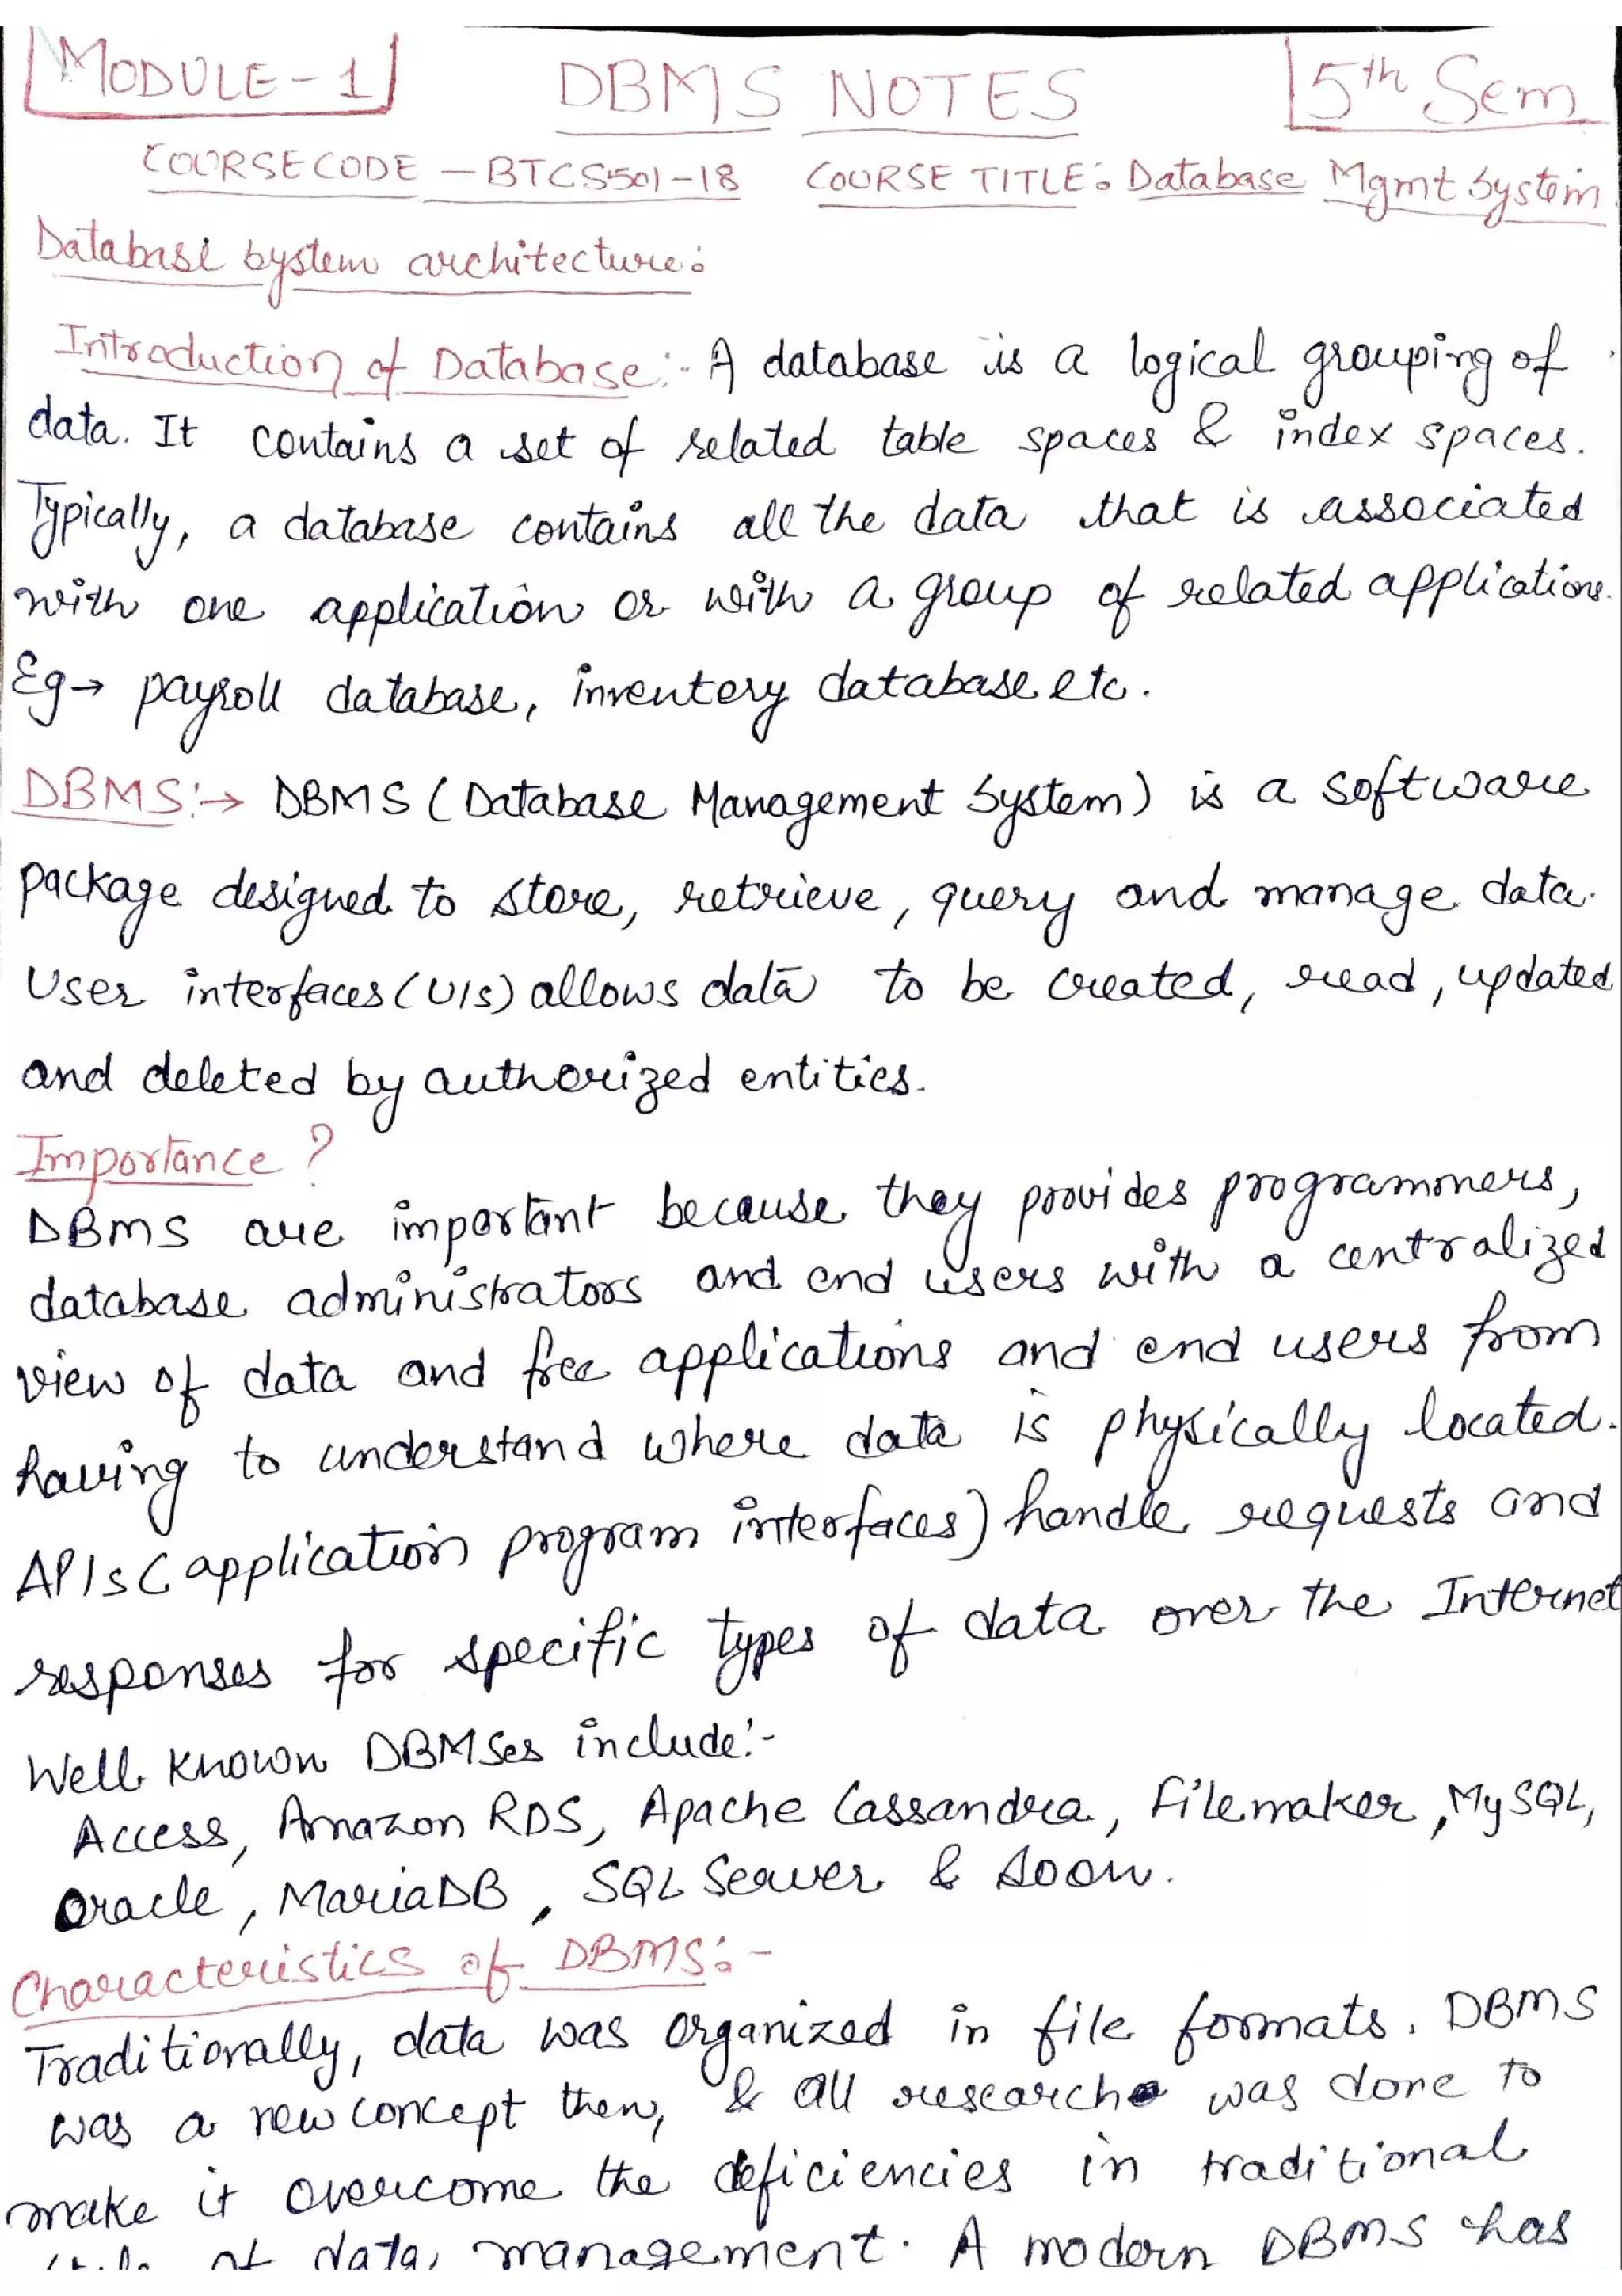 MODULE-1 DBMS NOTES 5th Sem
COURSE CODE - BTCS501-18 COURSE TITLE: Database Mgmt System
Database System architecture:
Introduction of Database:- A database is a logical grouping of
data. It contains a set of related table spaces & index spaces.
Typically, a database contains all the data that is associated
with one application or with a group of related applications.
Eg→ payroll database, inventory database etc.
DBMS:→ DBMS (Database Management System) is a software
package designed to store, retrieve, query and manage data.
User interfaces (UIs) allows data to be created, read, updated
and deleted by authorized entities.
Importance ?
DBMS are important because they provides programmers,
database administrators and end users with a centralized
view of data and free applications and end users from
having to understand where data is physically located.
APIs (application program interfaces) handle requests and
responses for specific types of data over the Internet
Well known DBMSes include:-
Access, Amazon RDS, Apache Cassandra, Filemaker, MySQL,
Oracle, MariaDB, SQL Server & soon.
Characteristics of DBMS:-
Traditionally, data was organized in file formats. DBMS
was a new concept then, & all research was done to
make it overcome the deficiencies in traditional
of data management. A modern DBMS has